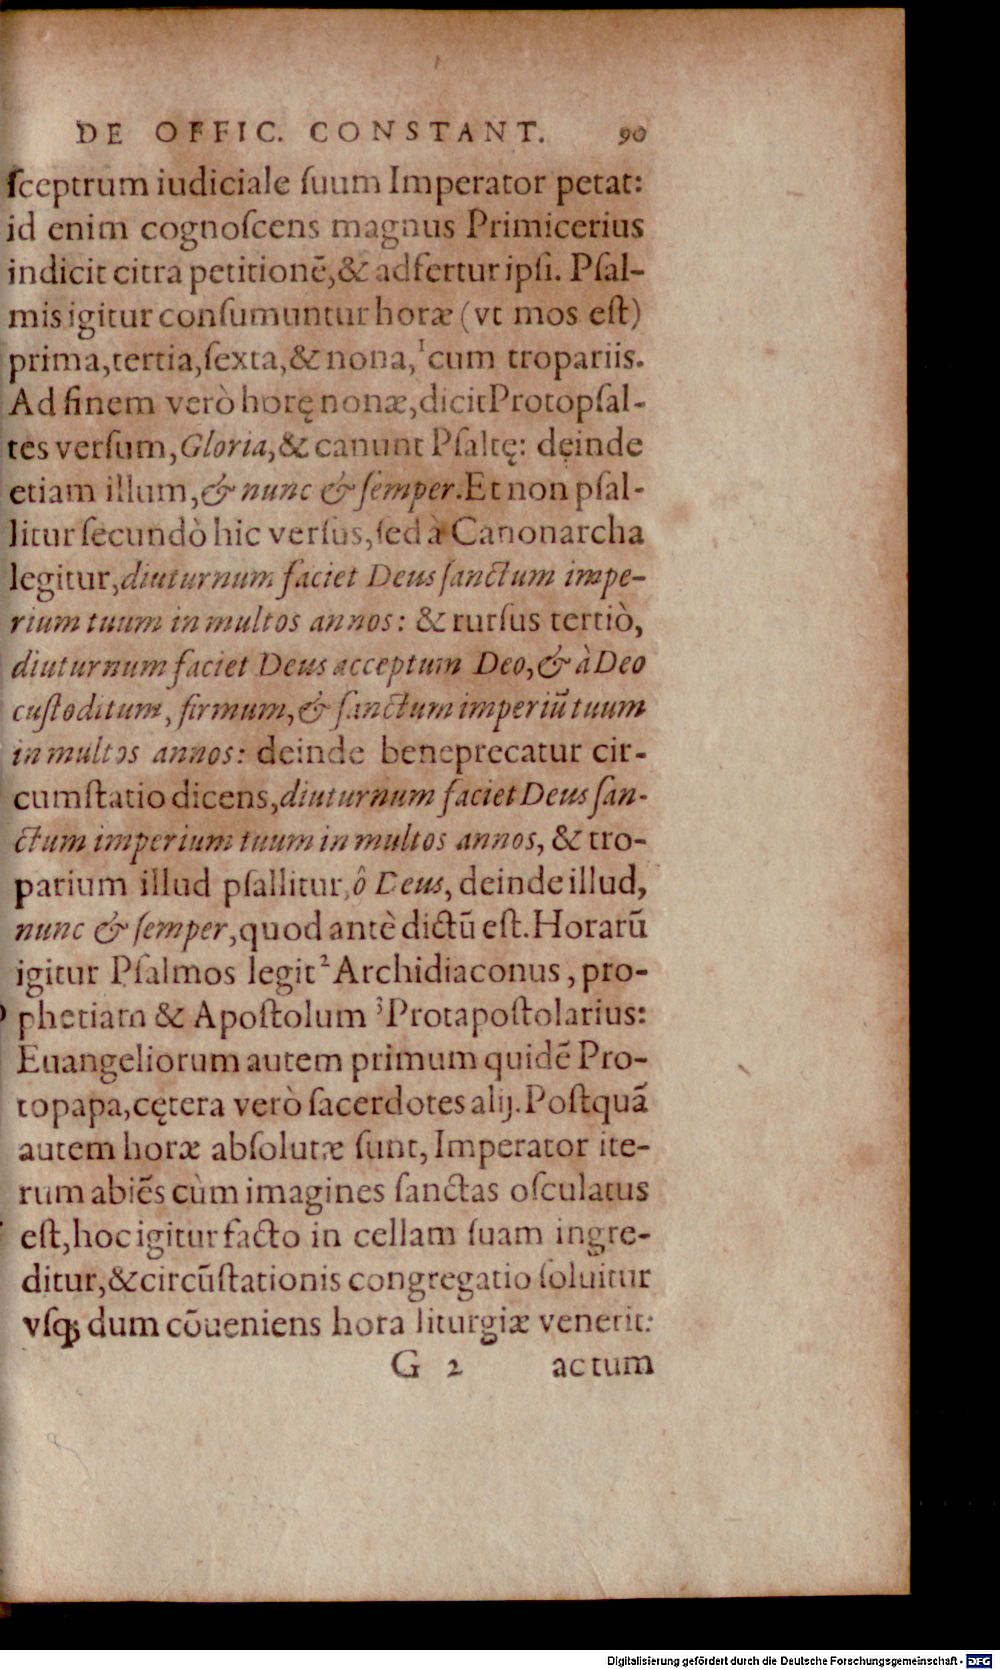 DE OFFIC. CONSTANT. 90
ſceptrum iudiciale ſuum Imperator petat:
id enim cognoſcens magnus Primicerius
indicit citra petitionē,& adfertur ipſi. Pſal-
mis igitur conſumuntur horæ (vt mos eſt)
prima,tertia,ſexta,& nona,¹cum tropariis.
Ad finem verò horę nonæ,dicit Protopſal-
tes verſum,Gloria,& canunt Pſaltę: deinde
etiam illum,& nunc & ſemper.Et non pſal-
litur ſecundò hic verſus,ſed à Canonarcha
legitur,diuturnum faciet Deus ſanctum impe-
rium tuum in multos annos: & rurſus tertiò,
diuturnum faciet Deus acceptum Deo,& à Deo
cuſtoditum, firmum,& ſanctum imperiũ tuum
in multos annos: deinde beneprecatur cir-
cumſtatio dicens,diuturnum faciet Deus ſan-
ctum imperium tuum in multos annos, & tro-
parium illud pſallitur,ô Deus, deinde illud,
nunc & ſemper,quod antè dictũ eſt.Horarũ
igitur Pſalmos legit ²Archidiaconus, pro-
phetiam & Apoſtolum ³Protapoſtolarius:
Euangeliorum autem primum quidē Pro-
topapa,cętera verò ſacerdotes alij.Poſtquã
autem horæ abſolutæ ſunt, Imperator ite-
rum abiēs cùm imagines ſanctas oſculatus
eſt,hoc igitur facto in cellam ſuam ingre-
ditur,& circũſtationis congregatio ſoluitur
vſq; dum cōueniens hora liturgiæ venerit:
G 2 actum
Digitalisierung gefördert durch die Deutsche Forschungsgemeinschaft - DFG